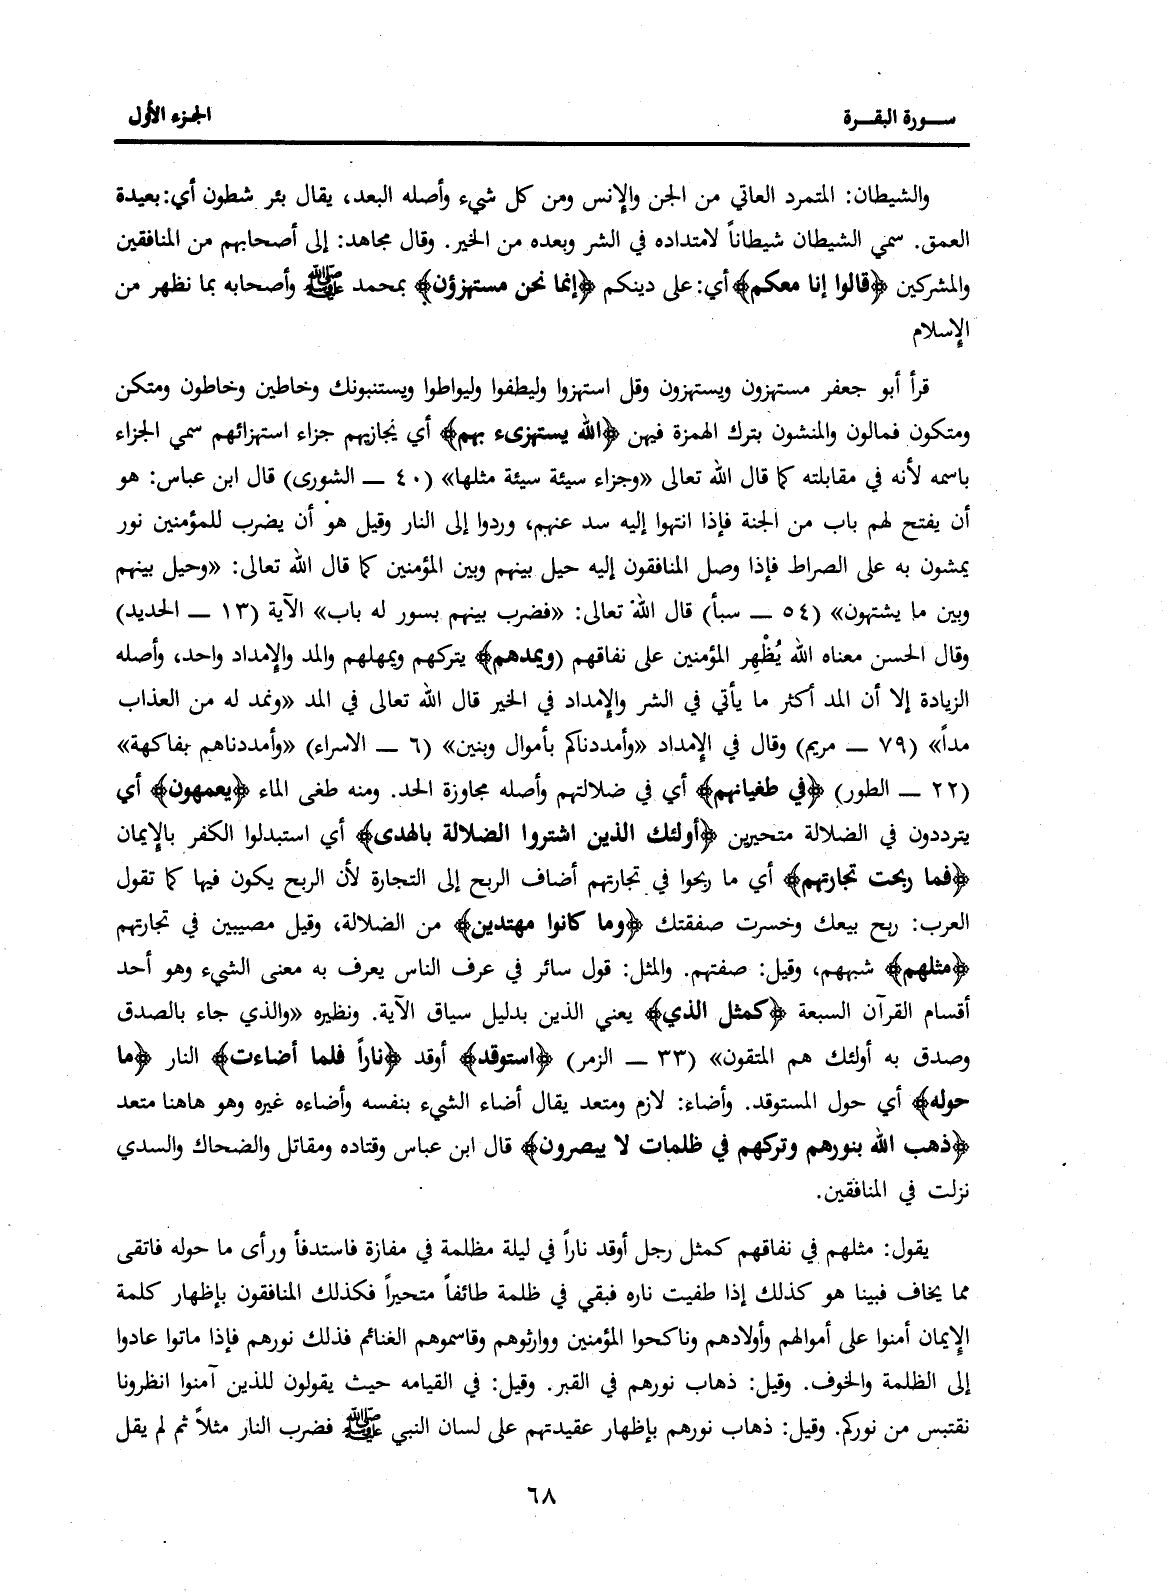 سورة البقرة
الجزء الأول
والشيطان: المتمرد العاتي من الجن والإنس ومن كل شيء وأصله البعد، يقال بئر شطون أي: بعيدة
العمق. سمي الشيطان شيطاناً لامتداده في الشر وبعده من الخير. وقال مجاهد: إلى أصحابهم من المنافقين
والمشركين ﴿قالوا إنا معكم﴾ أي: على دينكم ﴿إنما نحن مستهزؤن﴾ بمحمد ﷺ وأصحابه بما نظهر من
الإسلام
قرأ أبو جعفر مستهزون ويستهزون وقل استهزوا وليطفوا وليواطوا ويستنبونك وخاطين وخاطون ومتكن
ومتكون فمالون والمنشون بترك الهمزة فيهن ﴿الله يستهزىء بهم﴾ أي يجازيهم جزاء استهزائهم سمي الجزاء
باسمه لأنه في مقابلته كما قال الله تعالى «وجزاء سيئة سيئة مثلها» (٤٠ ــ الشورى) قال ابن عباس: هو
أن يفتح لهم باب من الجنة فإذا انتهوا إليه سد عنهم، وردوا إلى النار وقيل هو أن يضرب للمؤمنين نور
يمشون به على الصراط فإذا وصل المنافقون إليه حيل بينهم وبين المؤمنين كما قال الله تعالى: «وحيل بينهم
وبين ما يشتهون» (٥٤ ــ سبأ) قال الله تعالى: «فضرب بينهم بسور له باب» الآية (١٣ ــ الحديد)
وقال الحسن معناه الله يُظْهِر المؤمنين على نفاقهم (ويمدهم﴾ يتركهم ويمهلهم والمد والإمداد واحد، وأصله
الزيادة إلا أن المد أكثر ما يأتي في الشر والإمداد في الخير قال الله تعالى في المد «ونمد له من العذاب
مداً» (٧٩ ــ مريم) وقال في الإمداد «وأمددناكم بأموال وبنين» (٦ ــ الاسراء) «وأمددناهم بفاكهة»
(٢٢ ــ الطور) ﴿في طغيانهم﴾ أي في ضلالتهم وأصله مجاوزة الحد. ومنه طغى الماء ﴿يعمهون﴾ أي
يترددون في الضلالة متحيرين ﴿أولئك الذين اشتروا الضلالة بالهدى﴾ أي استبدلوا الكفر بالإيمان
﴿فما ربحت تجارتهم﴾ أي ما ربحوا في تجارتهم أضاف الربح إلى التجارة لأن الربح يكون فيها كما تقول
العرب: ربح بيعك وخسرت صفقتك ﴿وما كانوا مهتدين﴾ من الضلالة، وقيل مصيبين في تجارتهم
﴿مثلهم﴾ شبههم، وقيل: صفتهم. والمثل: قول سائر في عرف الناس يعرف به معنى الشيء وهو أحد
أقسام القرآن السبعة ﴿كمثل الذي﴾ يعني الذين بدليل سياق الآية. ونظيره «والذي جاء بالصدق
وصدق به أولئك هم المتقون» (٣٣ ــ الزمر) ﴿استوقد﴾ أوقد ﴿ناراً فلما أضاءت﴾ النار ﴿ما
حوله﴾ أي حول المستوقد. وأضاء: لازم ومتعد يقال أضاء الشيء بنفسه وأضاءه غيره وهو هاهنا متعد
﴿ذهب الله بنورهم وتركهم في ظلمات لا يبصرون﴾ قال ابن عباس وقتاده ومقاتل والضحاك والسدي
نزلت في المنافقين.
يقول: مثلهم في نفاقهم كمثل رجل أوقد ناراً في ليلة مظلمة في مفازة فاستدفأ ورأى ما حوله فاتقى
مما يخاف فبينا هو كذلك إذا طفيت ناره فبقي في ظلمة طائفاً متحيراً فكذلك المنافقون بإظهار كلمة
الإيمان أمنوا على أموالهم وأولادهم وناكحوا المؤمنين ووارثوهم وقاسموهم الغنائم فذلك نورهم فإذا ماتوا عادوا
إلى الظلمة والخوف. وقيل: ذهاب نورهم في القبر. وقيل: في القيامه حيث يقولون للذين آمنوا انظرونا
نقتبس من نوركم. وقيل: ذهاب نورهم بإظهار عقيدتهم على لسان النبي ﷺ فضرب النار مثلاً ثم لم يقل
٦٨